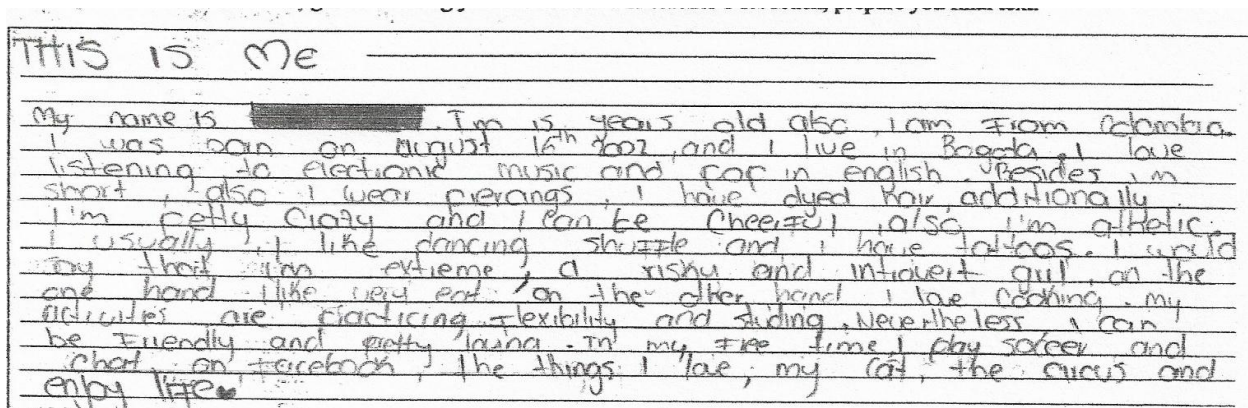 THIS IS ME
My name is . I'm 15 years old also, I am From Colombia.
I was born on August 16th 2002, and I live in Bogota. I love
listening to electronic music and pop in english. Besides i'm
short, also I wear piercings, I have dyed hair, additionally
I'm petty crazy and I can be cheerful, also I'm athletic.
I usually, I like dancing shuffle and I have tattoos. I would
say that, I'm extreme, a risky and introvert girl, on the
one hand I like very eat, on the other hand I love cooking. My
activities are practicing Flexibility and sliding. Nevertheless I can
be Friendly and pretty. In my Free time I play and
chat on Facebook, the things I love, my cat, the circus and
enjoy life